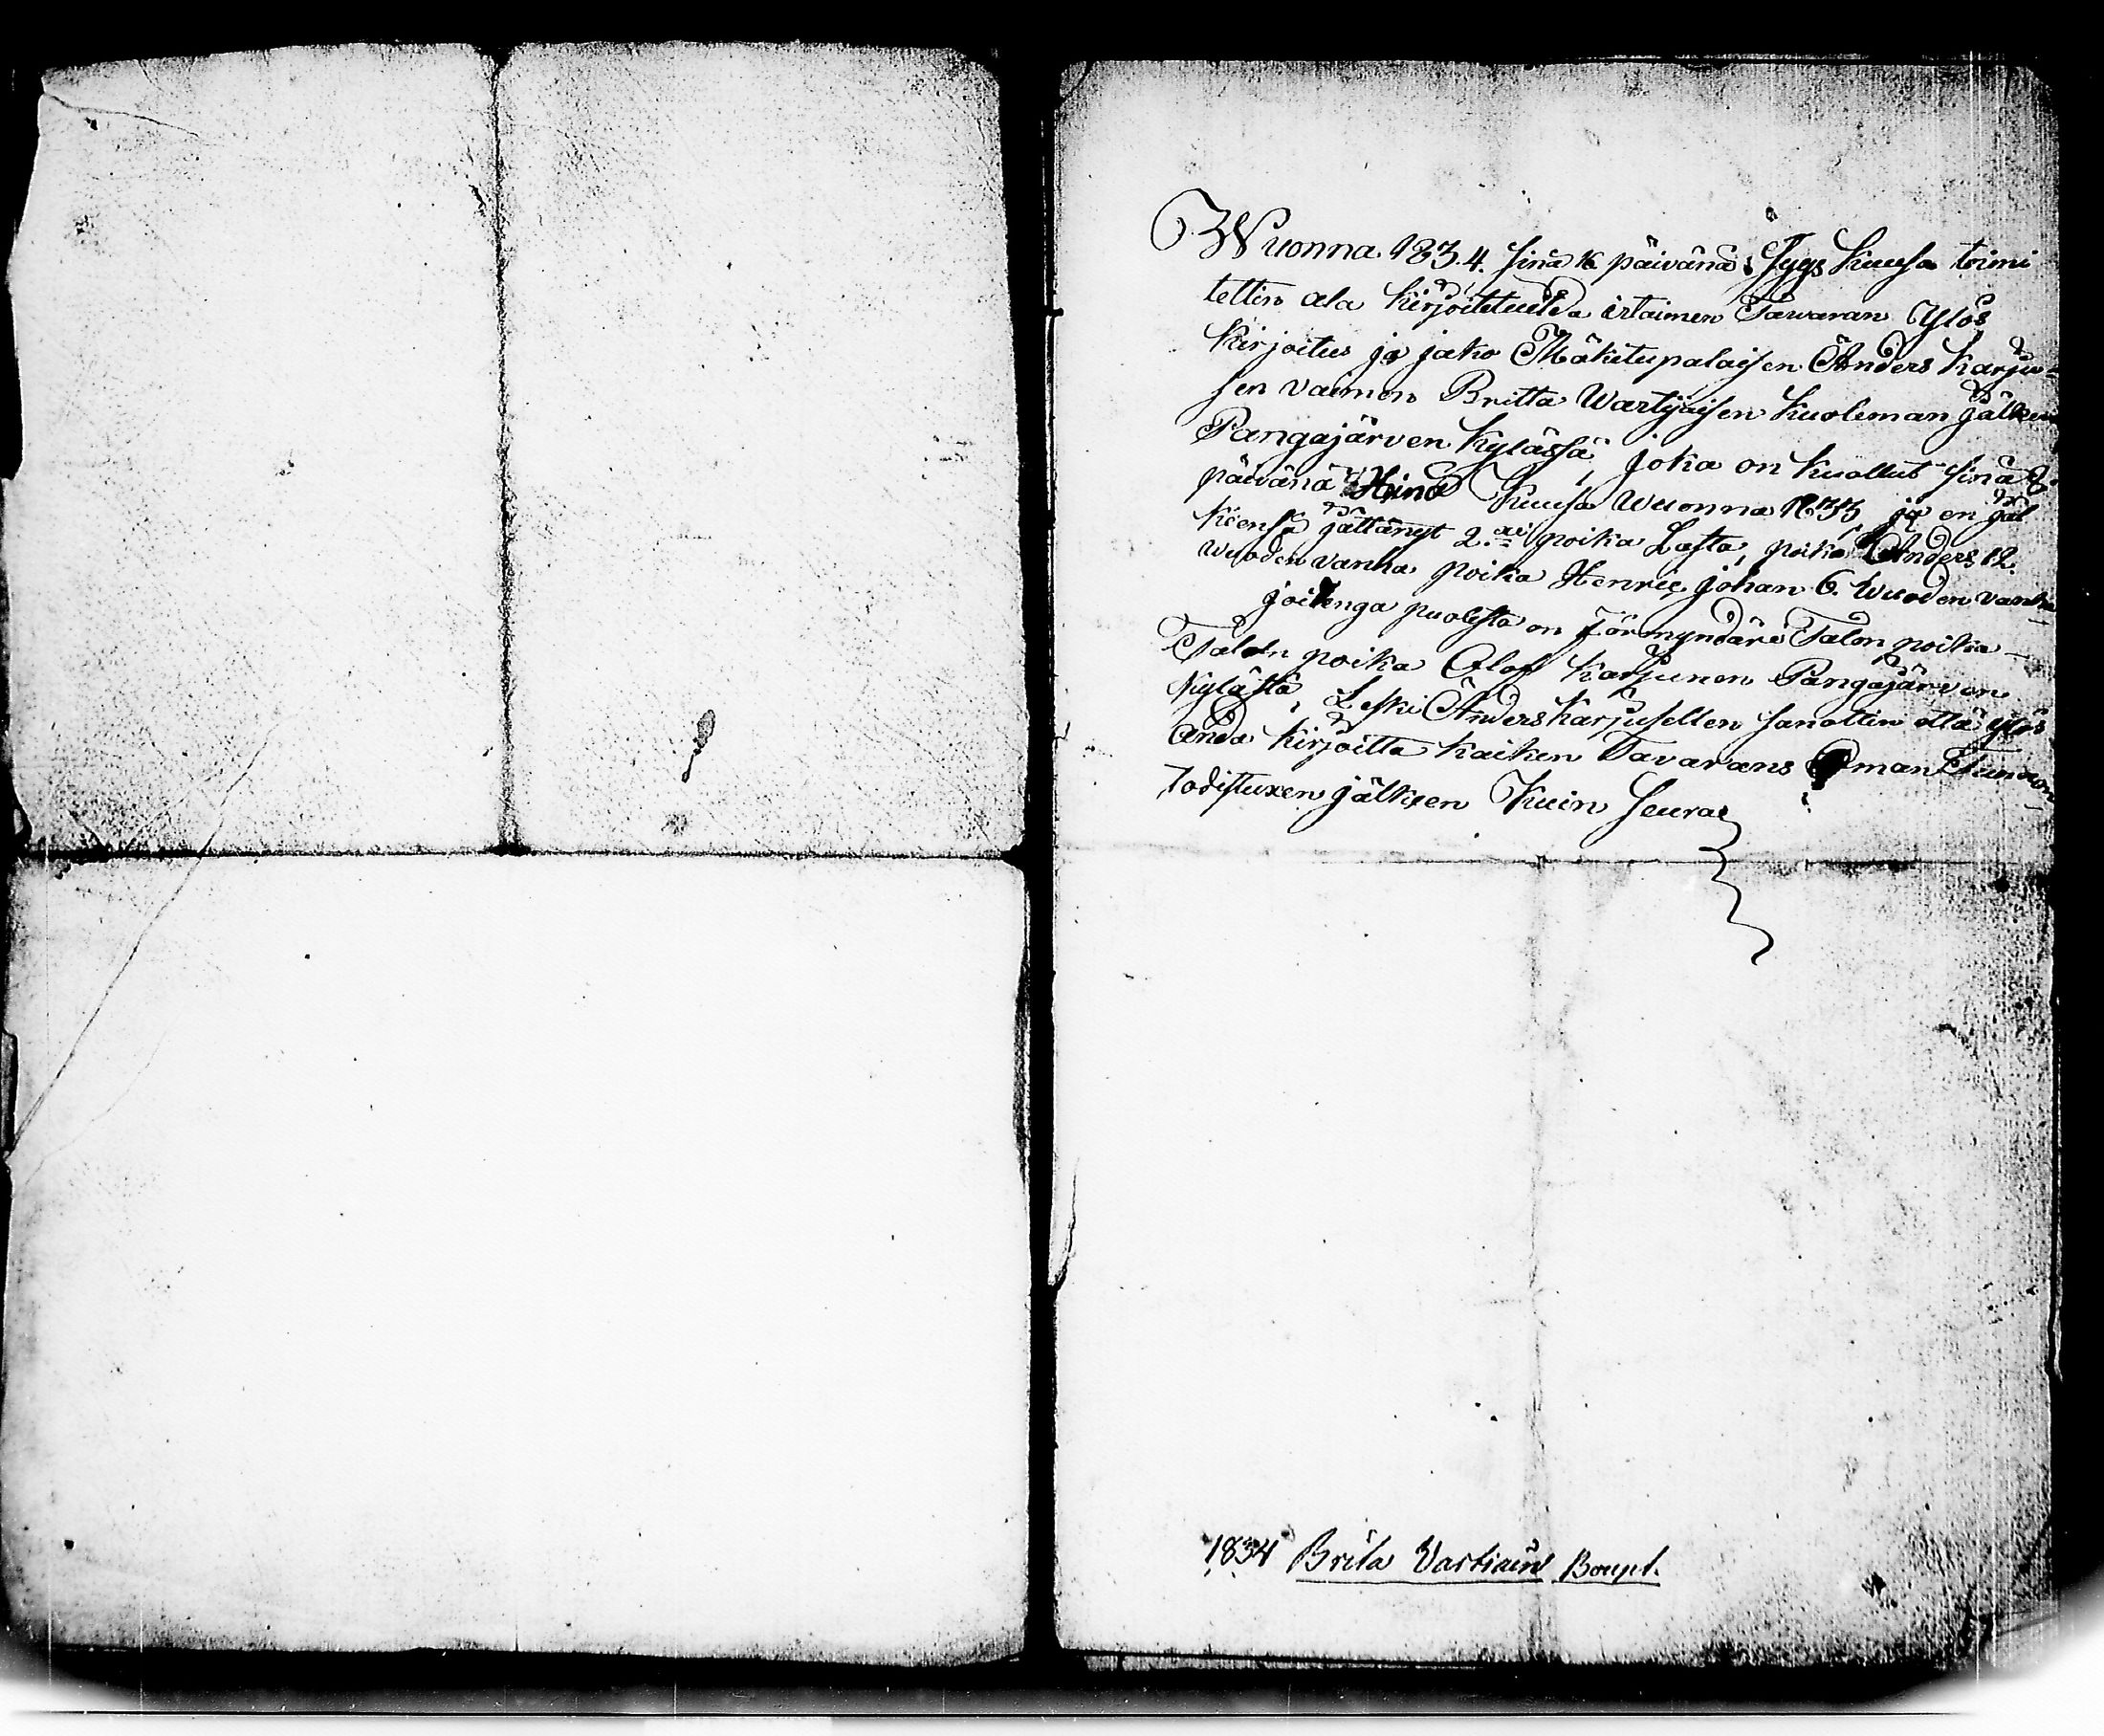 Wuonna 1834. sinä 16 päivänä Syys Kuusa toimi
tettin ala kirjoitetuilda irtaimen Tawaran Ylös
kirjoitus ja jako Mäkitupalaisen Anders Karju-
sen vaimon Britta Wartijaisen kuoleman jälken
Pangajärven kylässä, joka on kuollut sinä 8.
päivänä Heinä Kuusa Wuonna 1833, ja en jäl
kiensä jättänyt 2.xi poika Lasta, poika Anders 12.
wuoden vanha poika Henric johan 6. wuoden vanha
joidenga puolesta on Förmyndäri Talon poika
Talon poika Olof Karjunen Pangajärven
kylästä, Leski Anders Karjusellen sanottin että ylös
Anda kirjoitta kaiken Tavarans Oman Tunnon
todistuxen jälkeen Kuin seuraa
1834 Brita Vartiain Boupt.